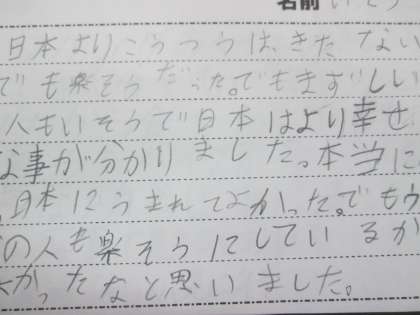 名前
日本よりこうつうは、きたない
でも楽そうだった。でもまずしい
人もいそうで日本はより幸せ
な事が分かりました。本当に
日本にうまれてよかった。でも
の人も楽そうにしているか
よかったなと思いました。